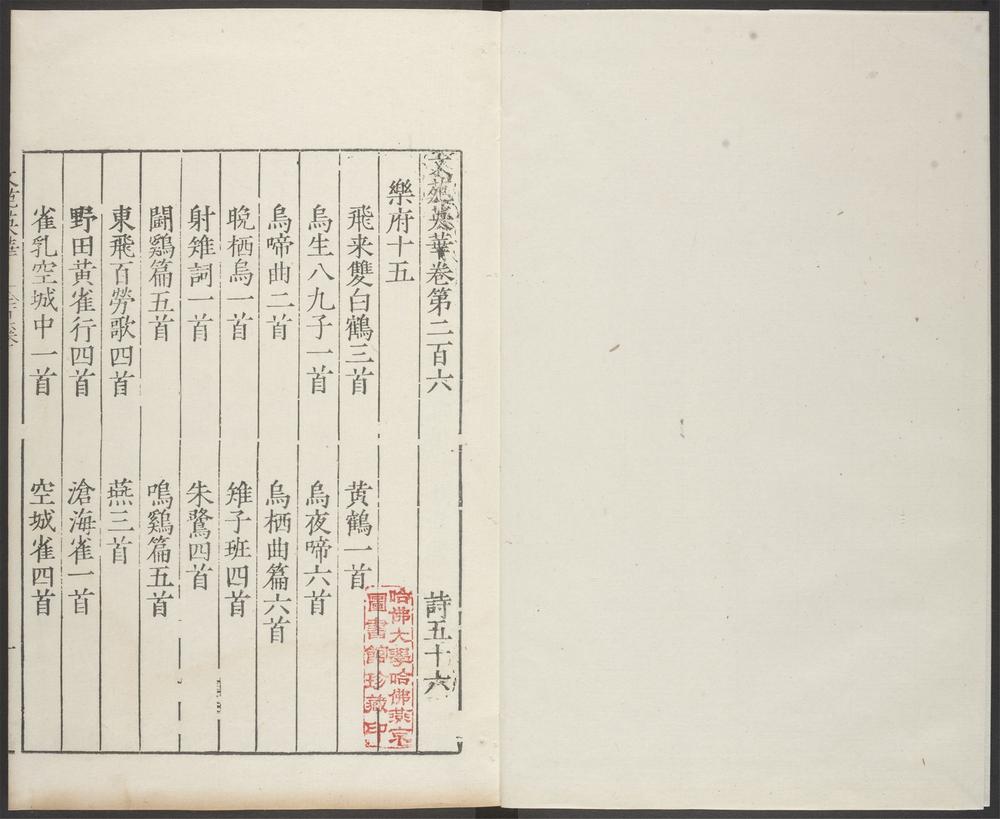 文苑英華卷第二百六 詩五十六
樂府十五
飛来雙白鶴三首 黄鶴一首
烏生八九子一首 烏夜啼六首
烏啼曲二首 烏栖曲篇六首
晩栖烏一首 雉子班四首
射雉詞一首 朱鷺四首
鬪鷄篇五首 鳴鷄篇五首
東飛百勞歌四首 燕三首
野田黃雀行四首 滄海雀一首
雀乳空城中一首 空城雀四首
哈佛大學哈佛燕京
圖書館珍藏印